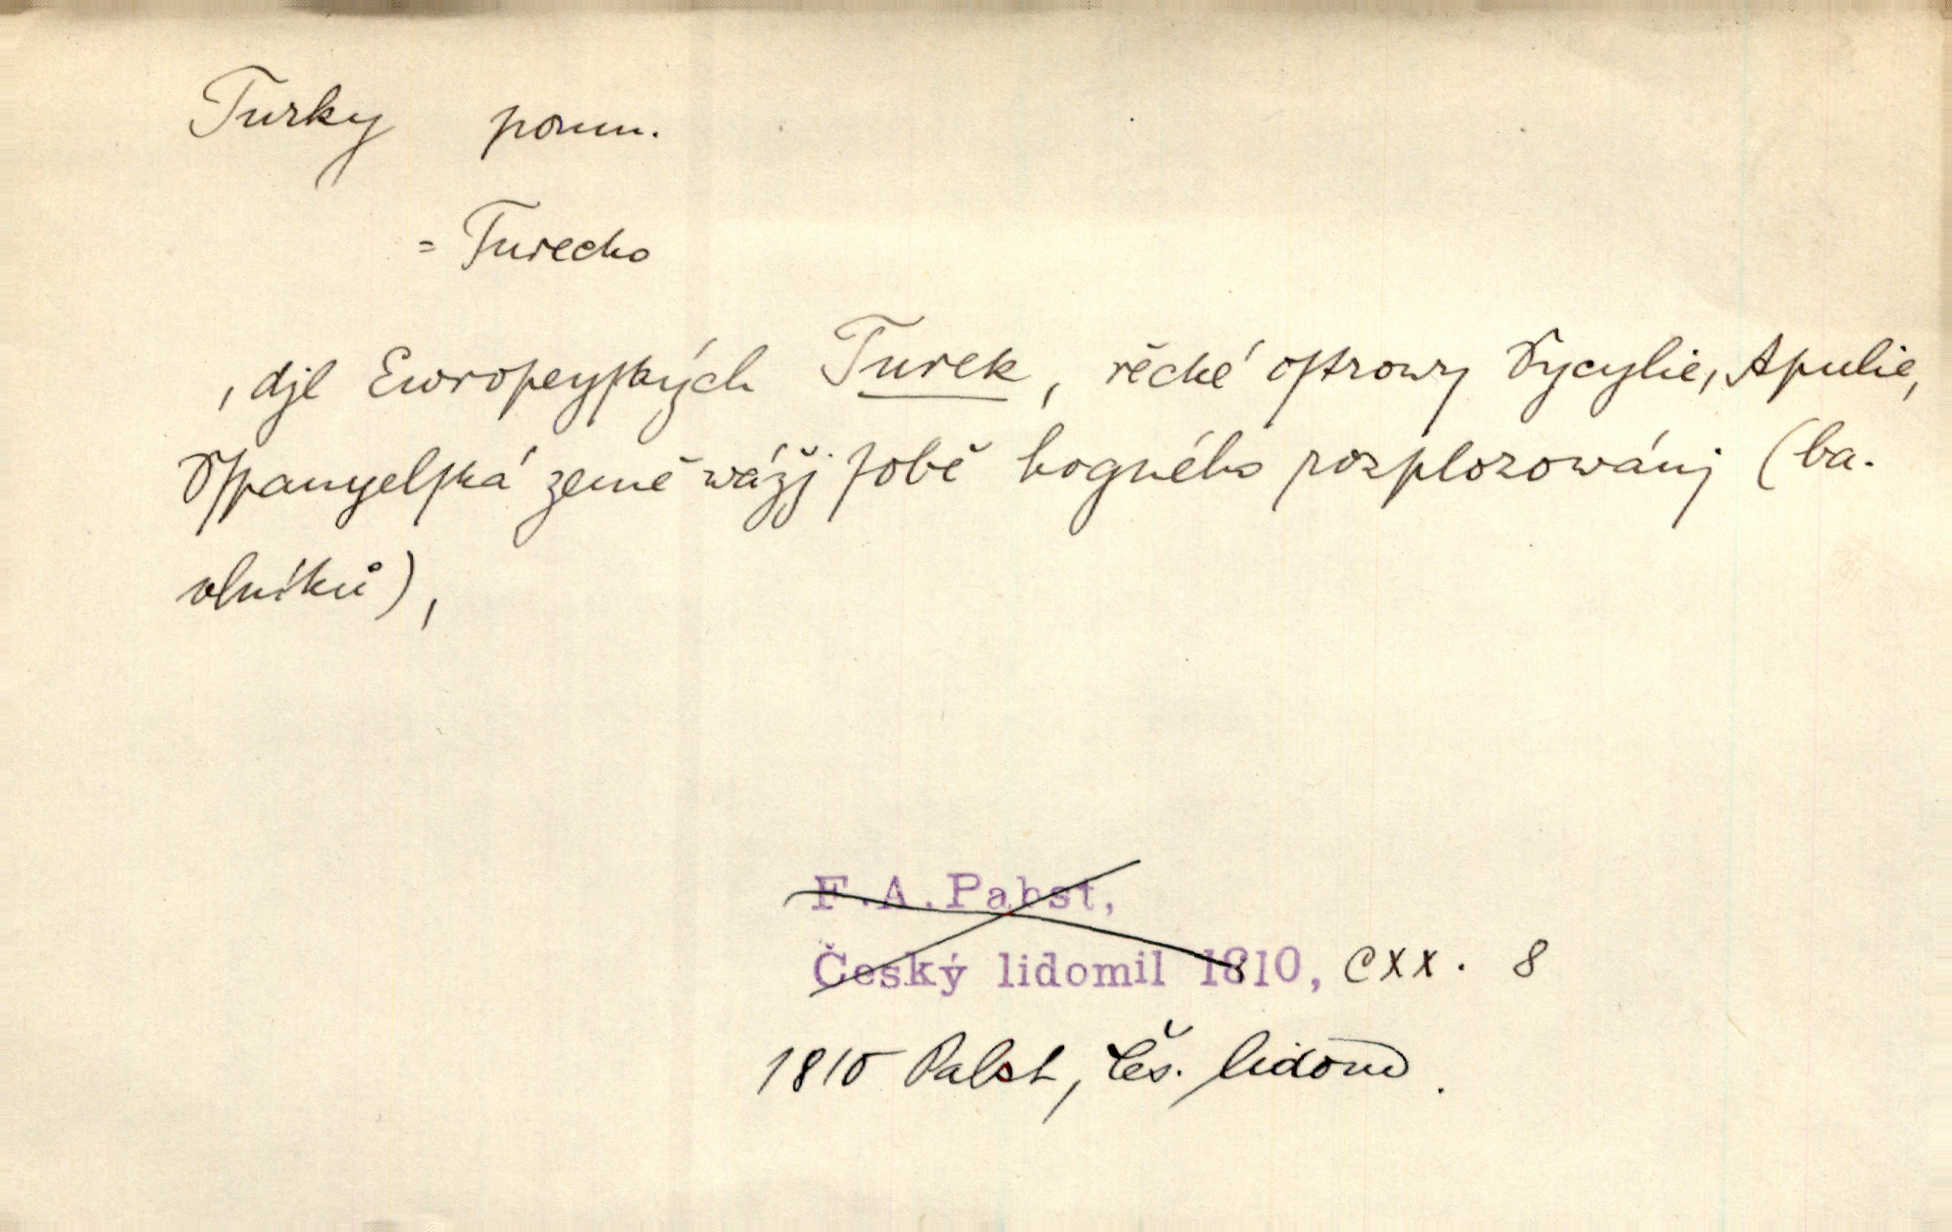 Turky pomn.
= Turecko
, djl Ewropeyſkých Turek, řecké oſtrowy Sycylie, Apulie,
Sſpanyelſká země wážj ſobě hogného rozplozowánj (ba-
vlníků),
F.A.Pabst,
Český lidomil 1810, CXX. 8
1810 Pabst, Čes. lidom.